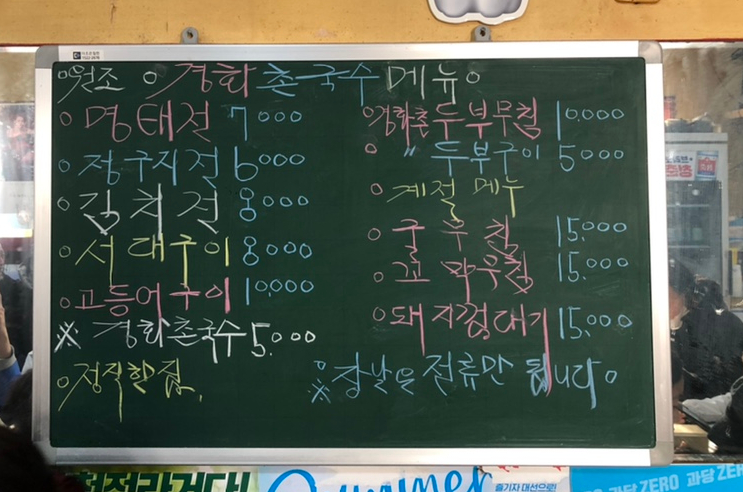 원조 경화촌국수 메뉴
명태전 7000
정구지전 6000
김치전 8000
서대구이 8000
고등어구이 10,000
※ 경화촌국수 5,000
정직한집.
경화촌두부무침 10,000
〃 두부구이 5000
계절메뉴
굴무침 15,000
꼬막무침 15,000
돼지껍데기 15,000
※ 장날은 전류만 됩니다
ZERO 과당 ZERO